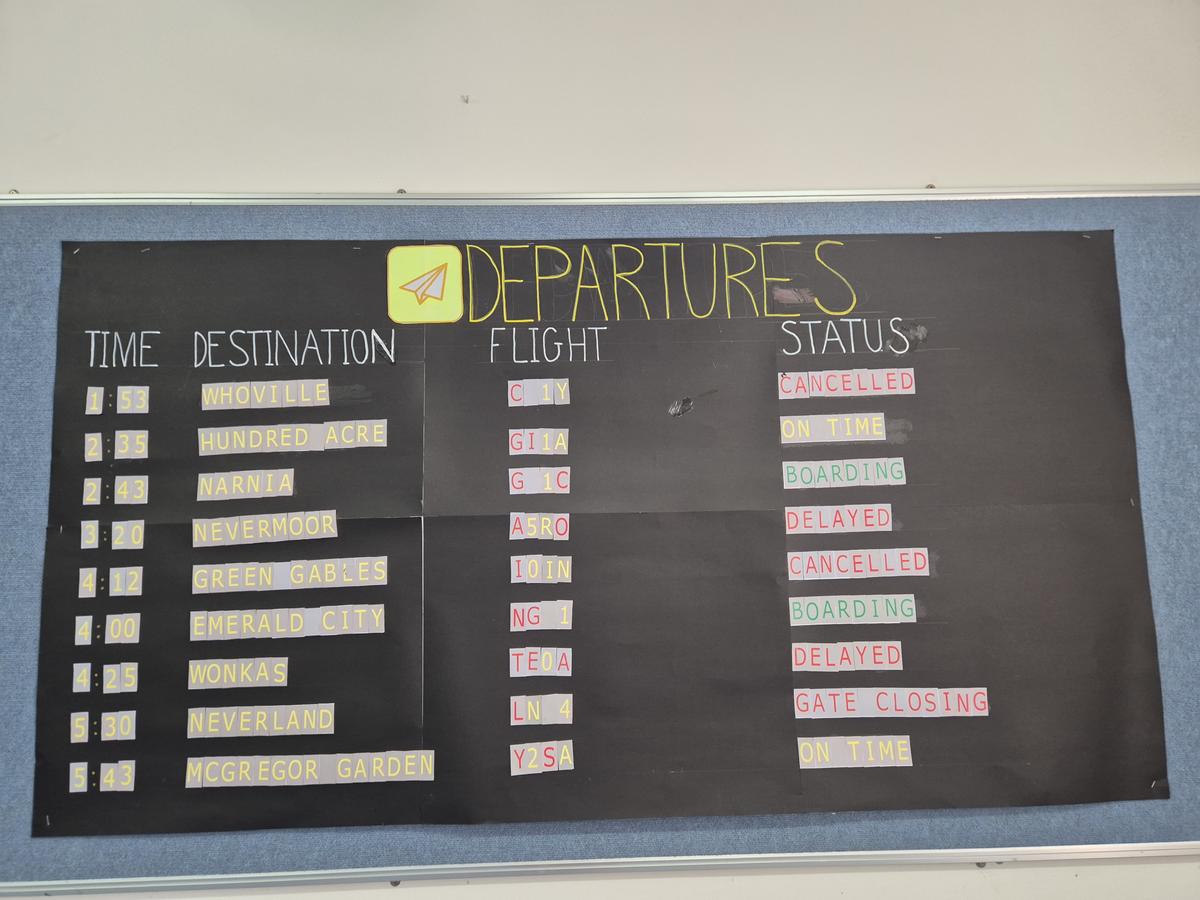 DEPARTURES
TIME DESTINATION FLIGHT STATUS
1:53 WHOVILLE C 1Y CANCELLED
2:35 HUNDRED ACRE GI1A ON TIME
2:43 NARNIA G 1C BOARDING
3:20 NEVERMOOR A5RO DELAYED
4:12 GREEN GABLES I0IN CANCELLED
4:00 EMERALD CITY NG 1 BOARDING
4:25 WONKAS TE0A DELAYED
5:30 NEVERLAND LN 4 GATE CLOSING
5:43 MCGREGOR GARDEN Y2SA ON TIME